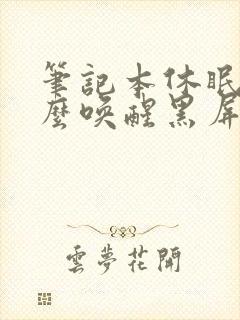 筆記本休眠
麼喚醒黑屏
雲夢花開